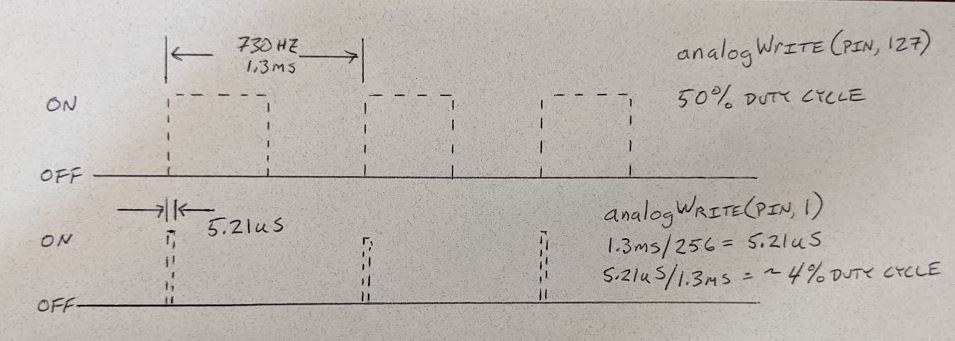 730 HZ
1.3ms
analogWRITE (PIN, 127)
50% DUTY CYCLE
ON
OFF
5.21uS
analogWRITE(PIN, 1)
1.3ms/256 = 5.21uS
5.21uS/1.3ms = ~4% DUTY CYCLE
ON
OFF